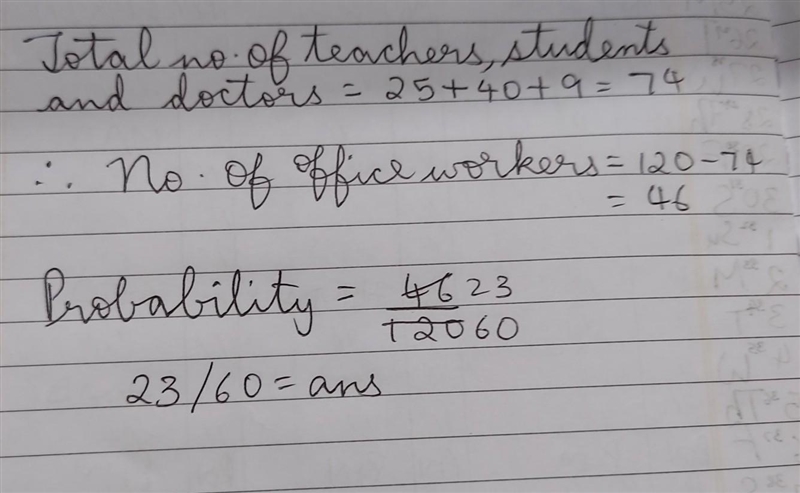 Total no. of teachers, students
and doctors = 25+40+9 = 74
∴ No. of office workers = 120-74
= 46
Probability = 46 23
120 60
23/60 = ans